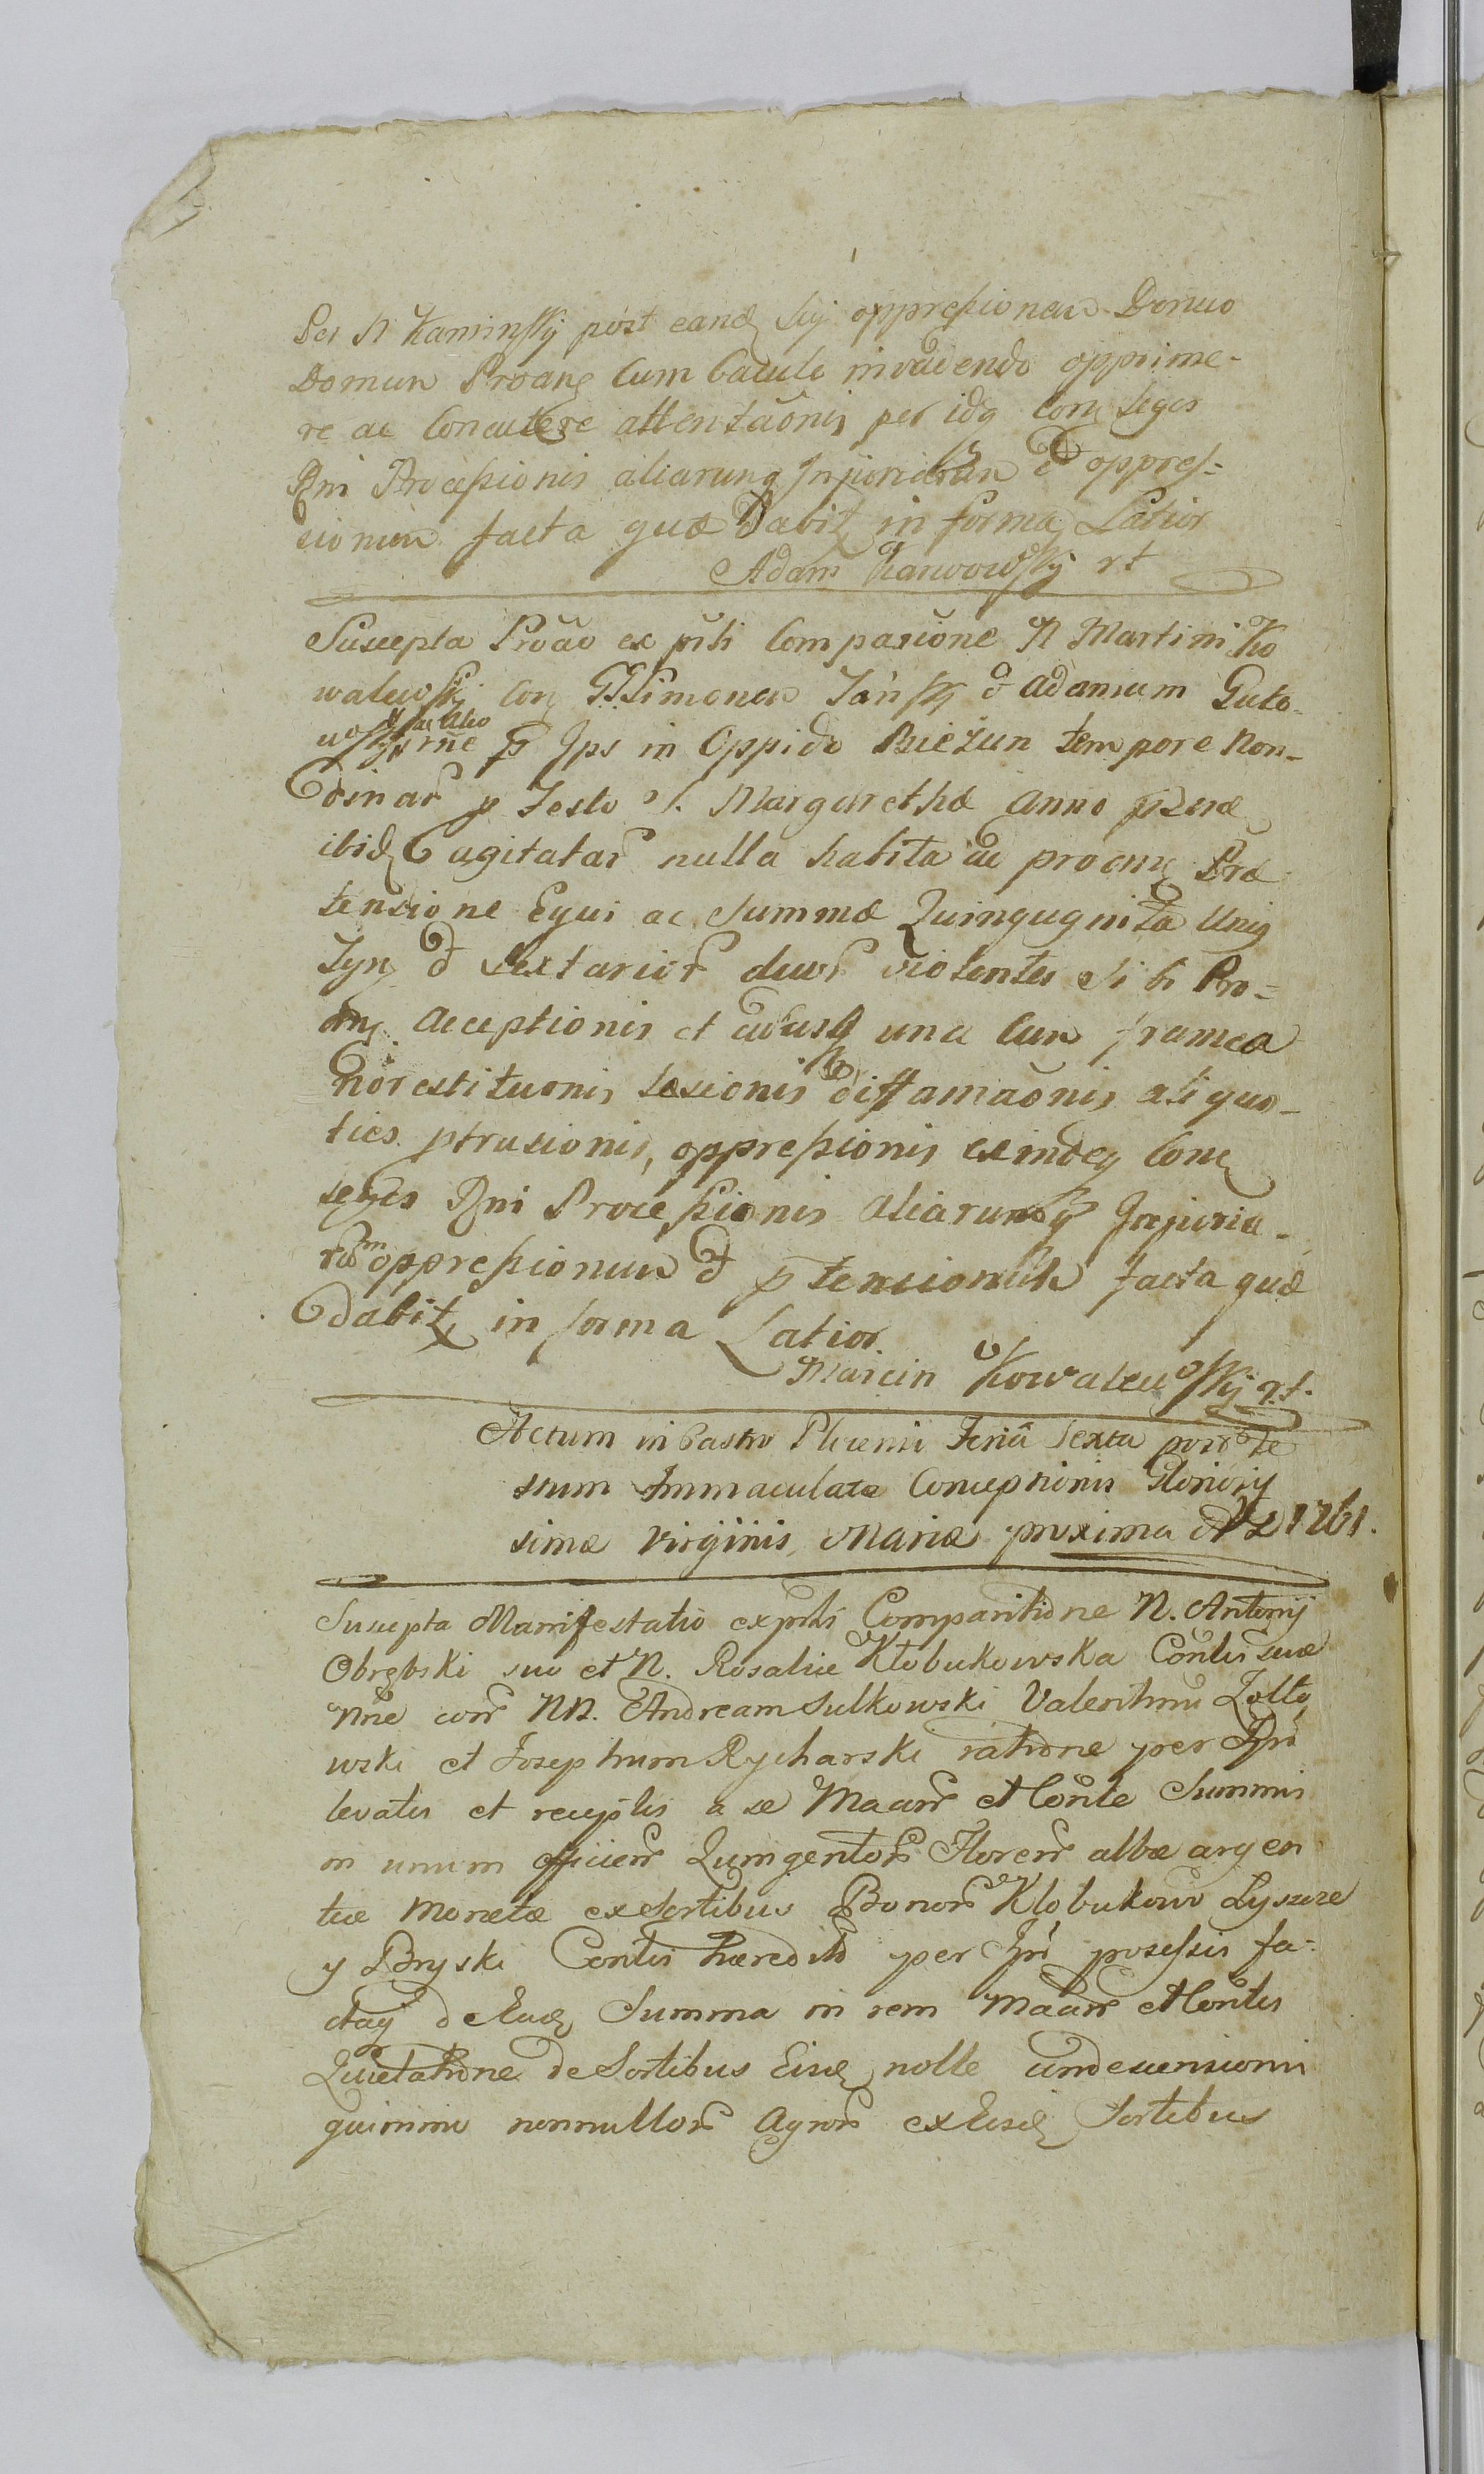 Per N Kaminsky post eand Sui oppressionem Domuo
Domum Proang Cum baculo invadendo opprime-
re ac Concutere attentaõnis per idq Con Leges
Rni Processionis aliarumq Injuriarum et oppres-
sionum facta quæ dabit in forma Latior
Adam Karwowsky rt
Suscepta Proão ex pñti Comparione N Martini Ko
walewsky Con GG Simonem Jańsky et Adamum Guto
wsky rñe Ips in Oppido Bieżun tempore Non-
dinar p Festo S. Margarethæ Anno
ibid agitatar nulla habita ac proang Præ
tensione Equi ac Summæ Quinquaginta Unis
Tyn et Sextarior duor violenter Sibi Pro-
ang Acceptionis et una Cum framea
norestituonis Læsionis diffamaõnis ali quo-
ties ptrusionis, oppressionis exindeq Con
Leges Rni Processionis Aliarumq Injuria-
rum oppressionum et ptensionum facta quæ
dabit in forma Latior.
Marcin Kowalewsky rt.
Actum in Castro Plocensi Feria Sexta post Fe
stum Immaculatæ Conceptionis Gloriosis
simæ Virginis Mariæ proxima A D 1761.
Suscepta Manifestatio ex pñti Comparitione N. Antonij
Obrębski suo et N. Rosaliæ Kłobukowska Contis suæ
Nñe con NN. Andream Sulkowski Valentinum Zołto
wski et Josephum Rycharski ratione per Ips
levatis et receptis a se Maan et Conte Summis
in unum efficien Quingentor Floren albæ argen
teæ Monetæ ex Sortibus Bonor Kłobukowo Łyszcze
y Bryski Contis hæredit per Ips posessis fa-
ctaq de Ead Summa in rem Maan et Contis
Quietatione de Sortibus Eisd nolle condescensionis
quinimo nonnullor Agror ex Eisd Sortibus